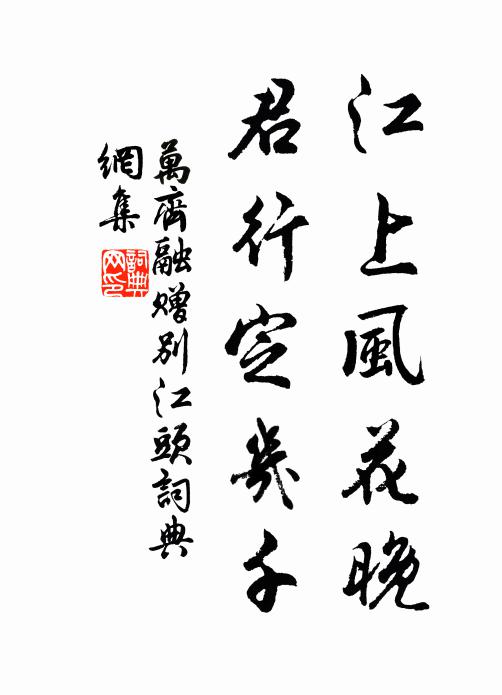 江上風花晚
君行定幾千
萬齊融贈別江頭詞典
網集
詞典
网印